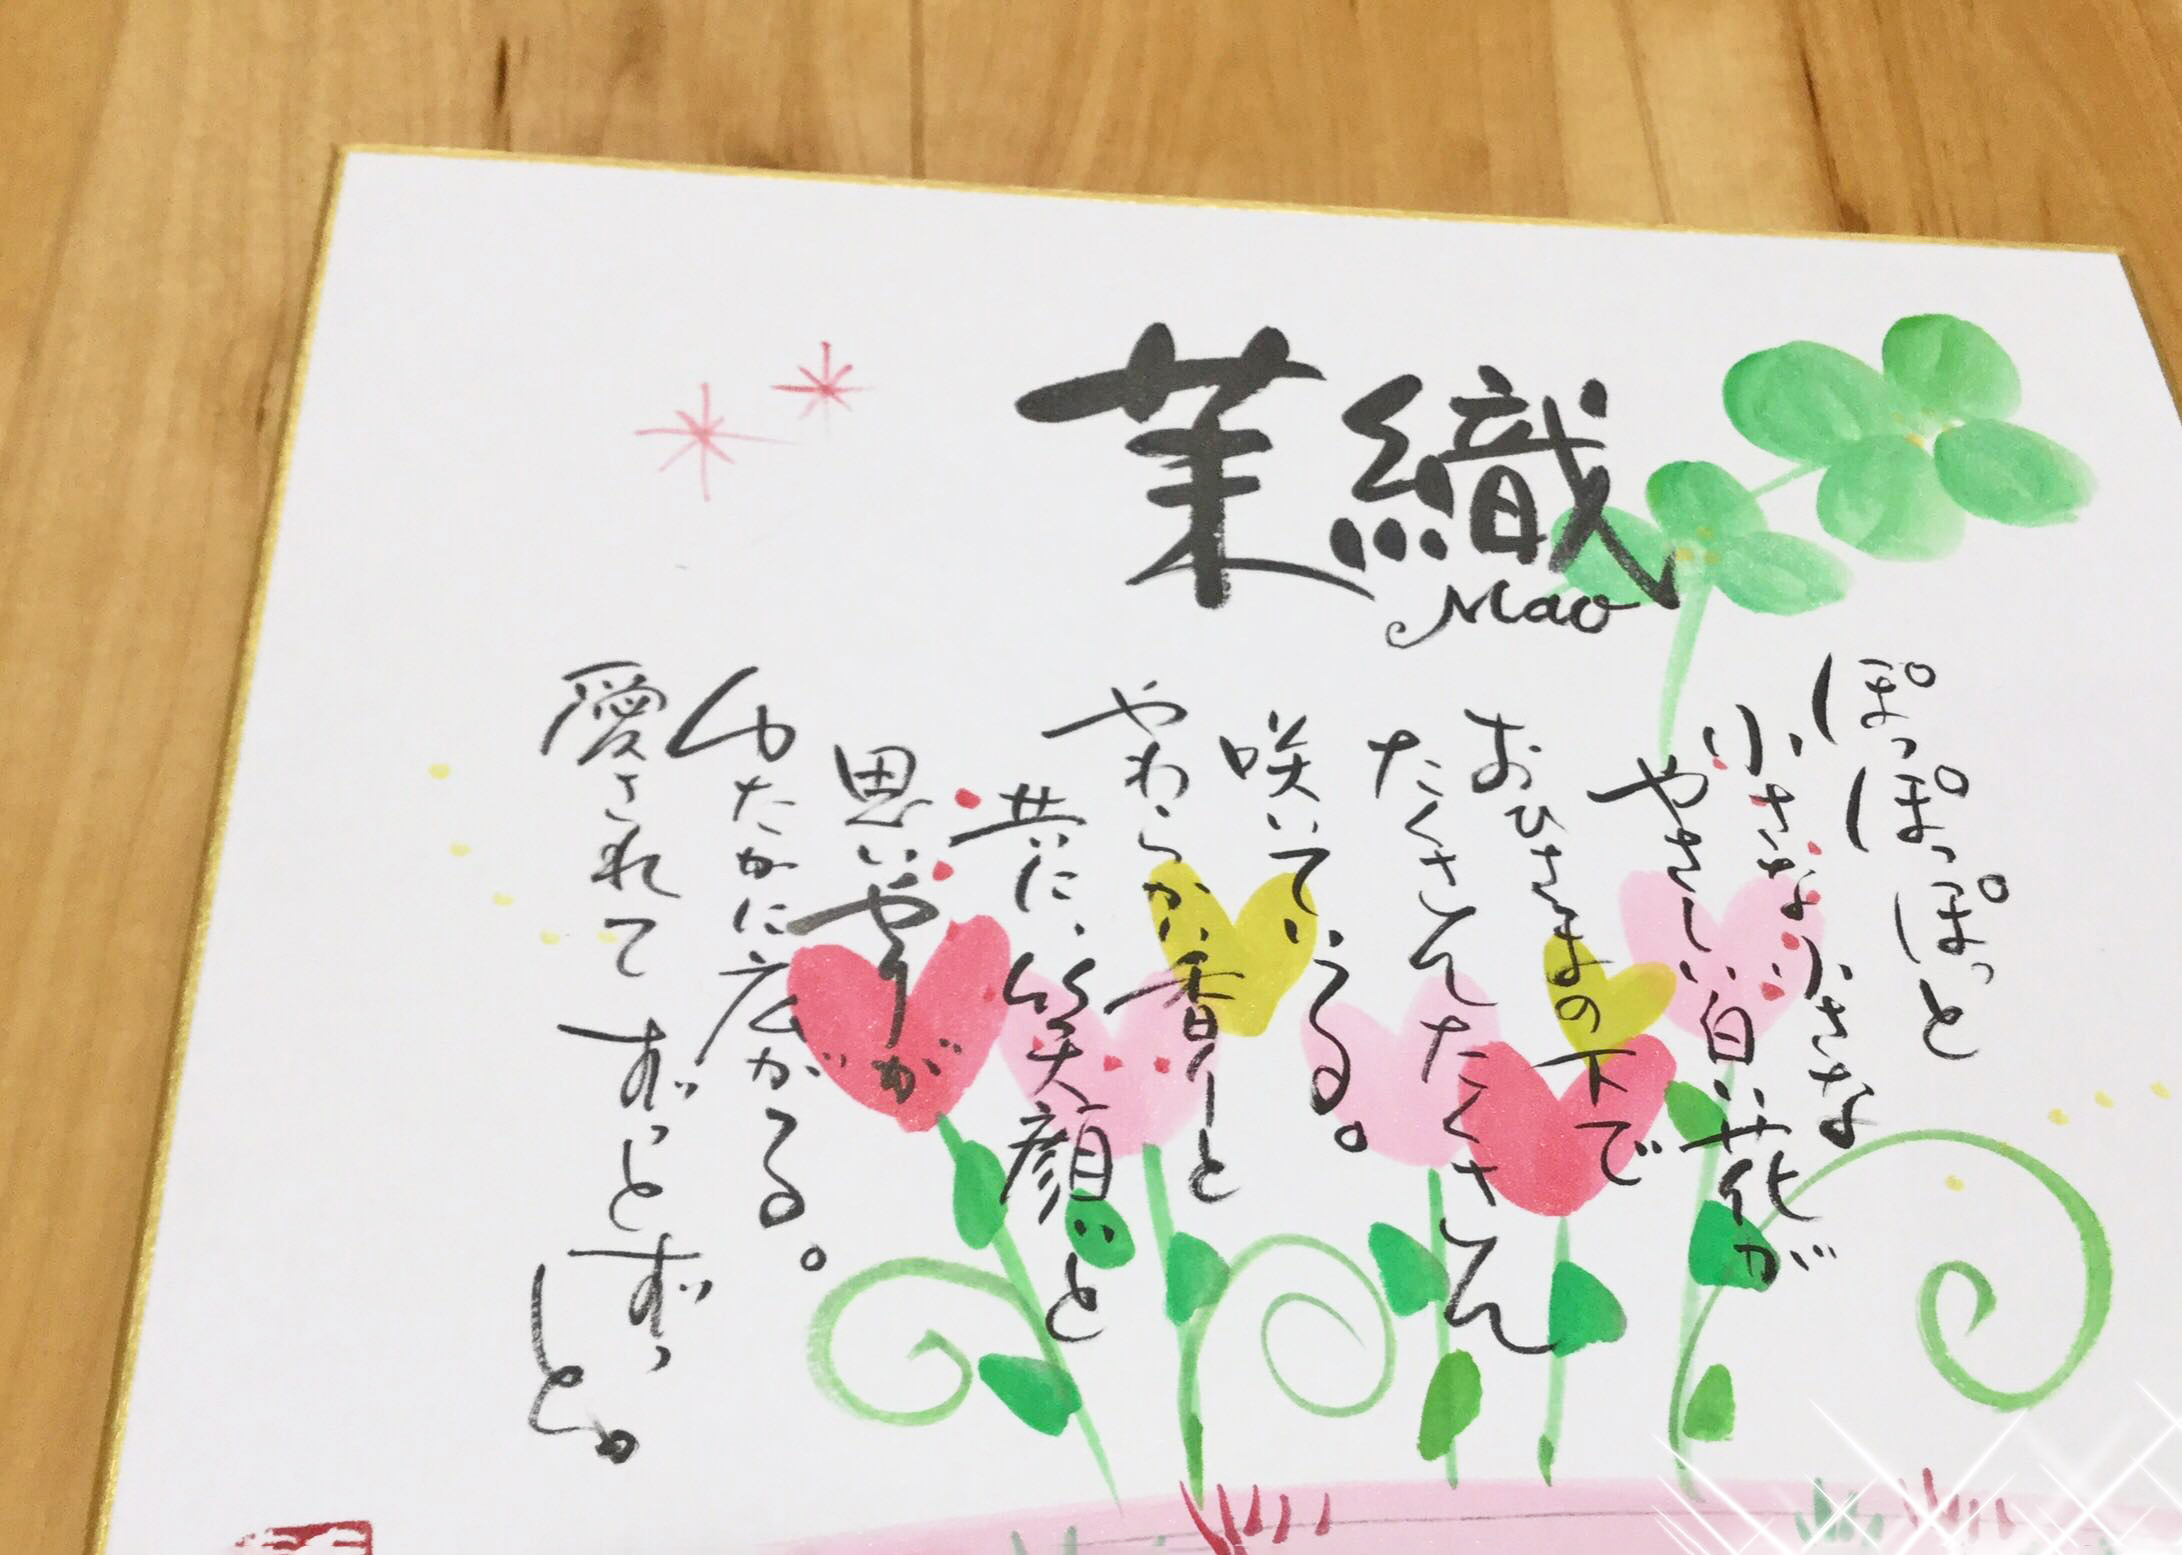 茉織
Mao
ぽっぽっぽっと
小さな小さな
やさしい白い花が
おひさまの下で
たくさんたくさん
咲いている。
やわらかい香りと
共に、笑顔と
思いやりが
ゆたかに広がる。
愛されてずっとずっ
と。